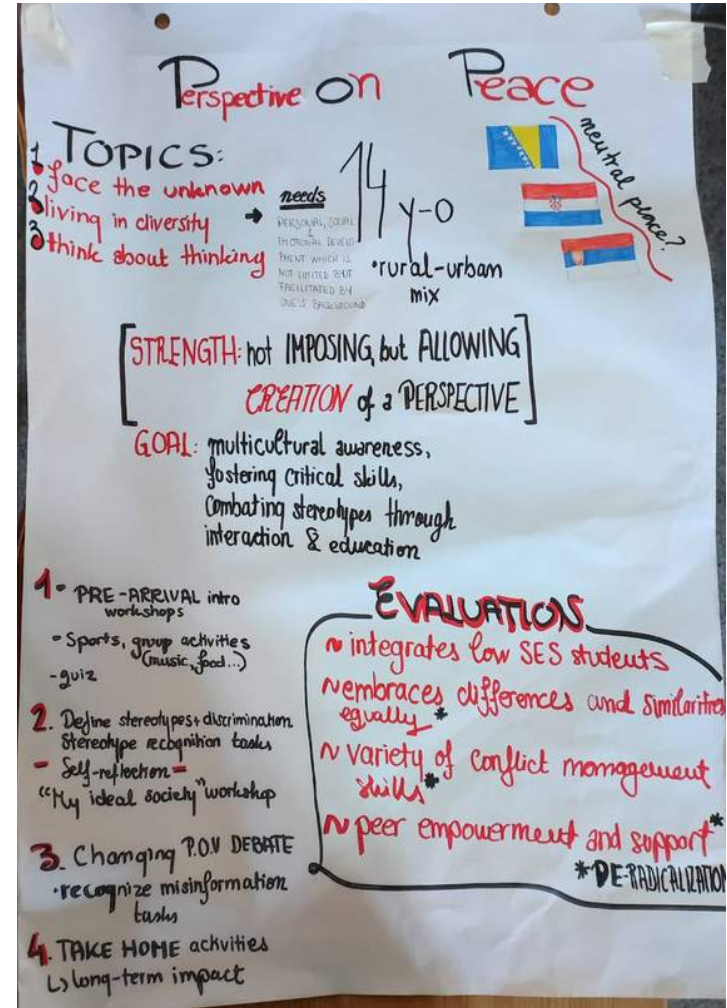 Perspective on Peace
TOPICS:
1 face the unknown
2 living in diversity
3 think about thinking
→ needs
PERSONAL, SOCIAL
&
EMOTIONAL DEVELOP
MENT WHICH IS
NOT LIMITED BUT
FACILITATED BY
ONE'S BACKGROUND
14 y-o
• rural-urban
mix
neutral place?
[STRENGTH: not IMPOSING, but ALLOWING
CREATION of a PERSPECTIVE]
GOAL: multicultural awareness,
fostering critical skills,
combating stereotypes through
interaction & education
1- PRE-ARRIVAL intro
workshops
- Sports, group activities
(music, food...)
- quiz
2. Define stereotypes + discrimination
Stereotype recognition tasks
- Self-reflection -
"My ideal society" workshop
3. Changing P.O.V DEBATE
• recognize misinformation
tasks
4. TAKE HOME activities
↳ long-term impact
EVALUATION
~ integrates low SES students
~ embraces differences and similarities
equally *
~ variety of conflict management
skills *
~ peer empowerment and support *
* DE-RADICALIZATION